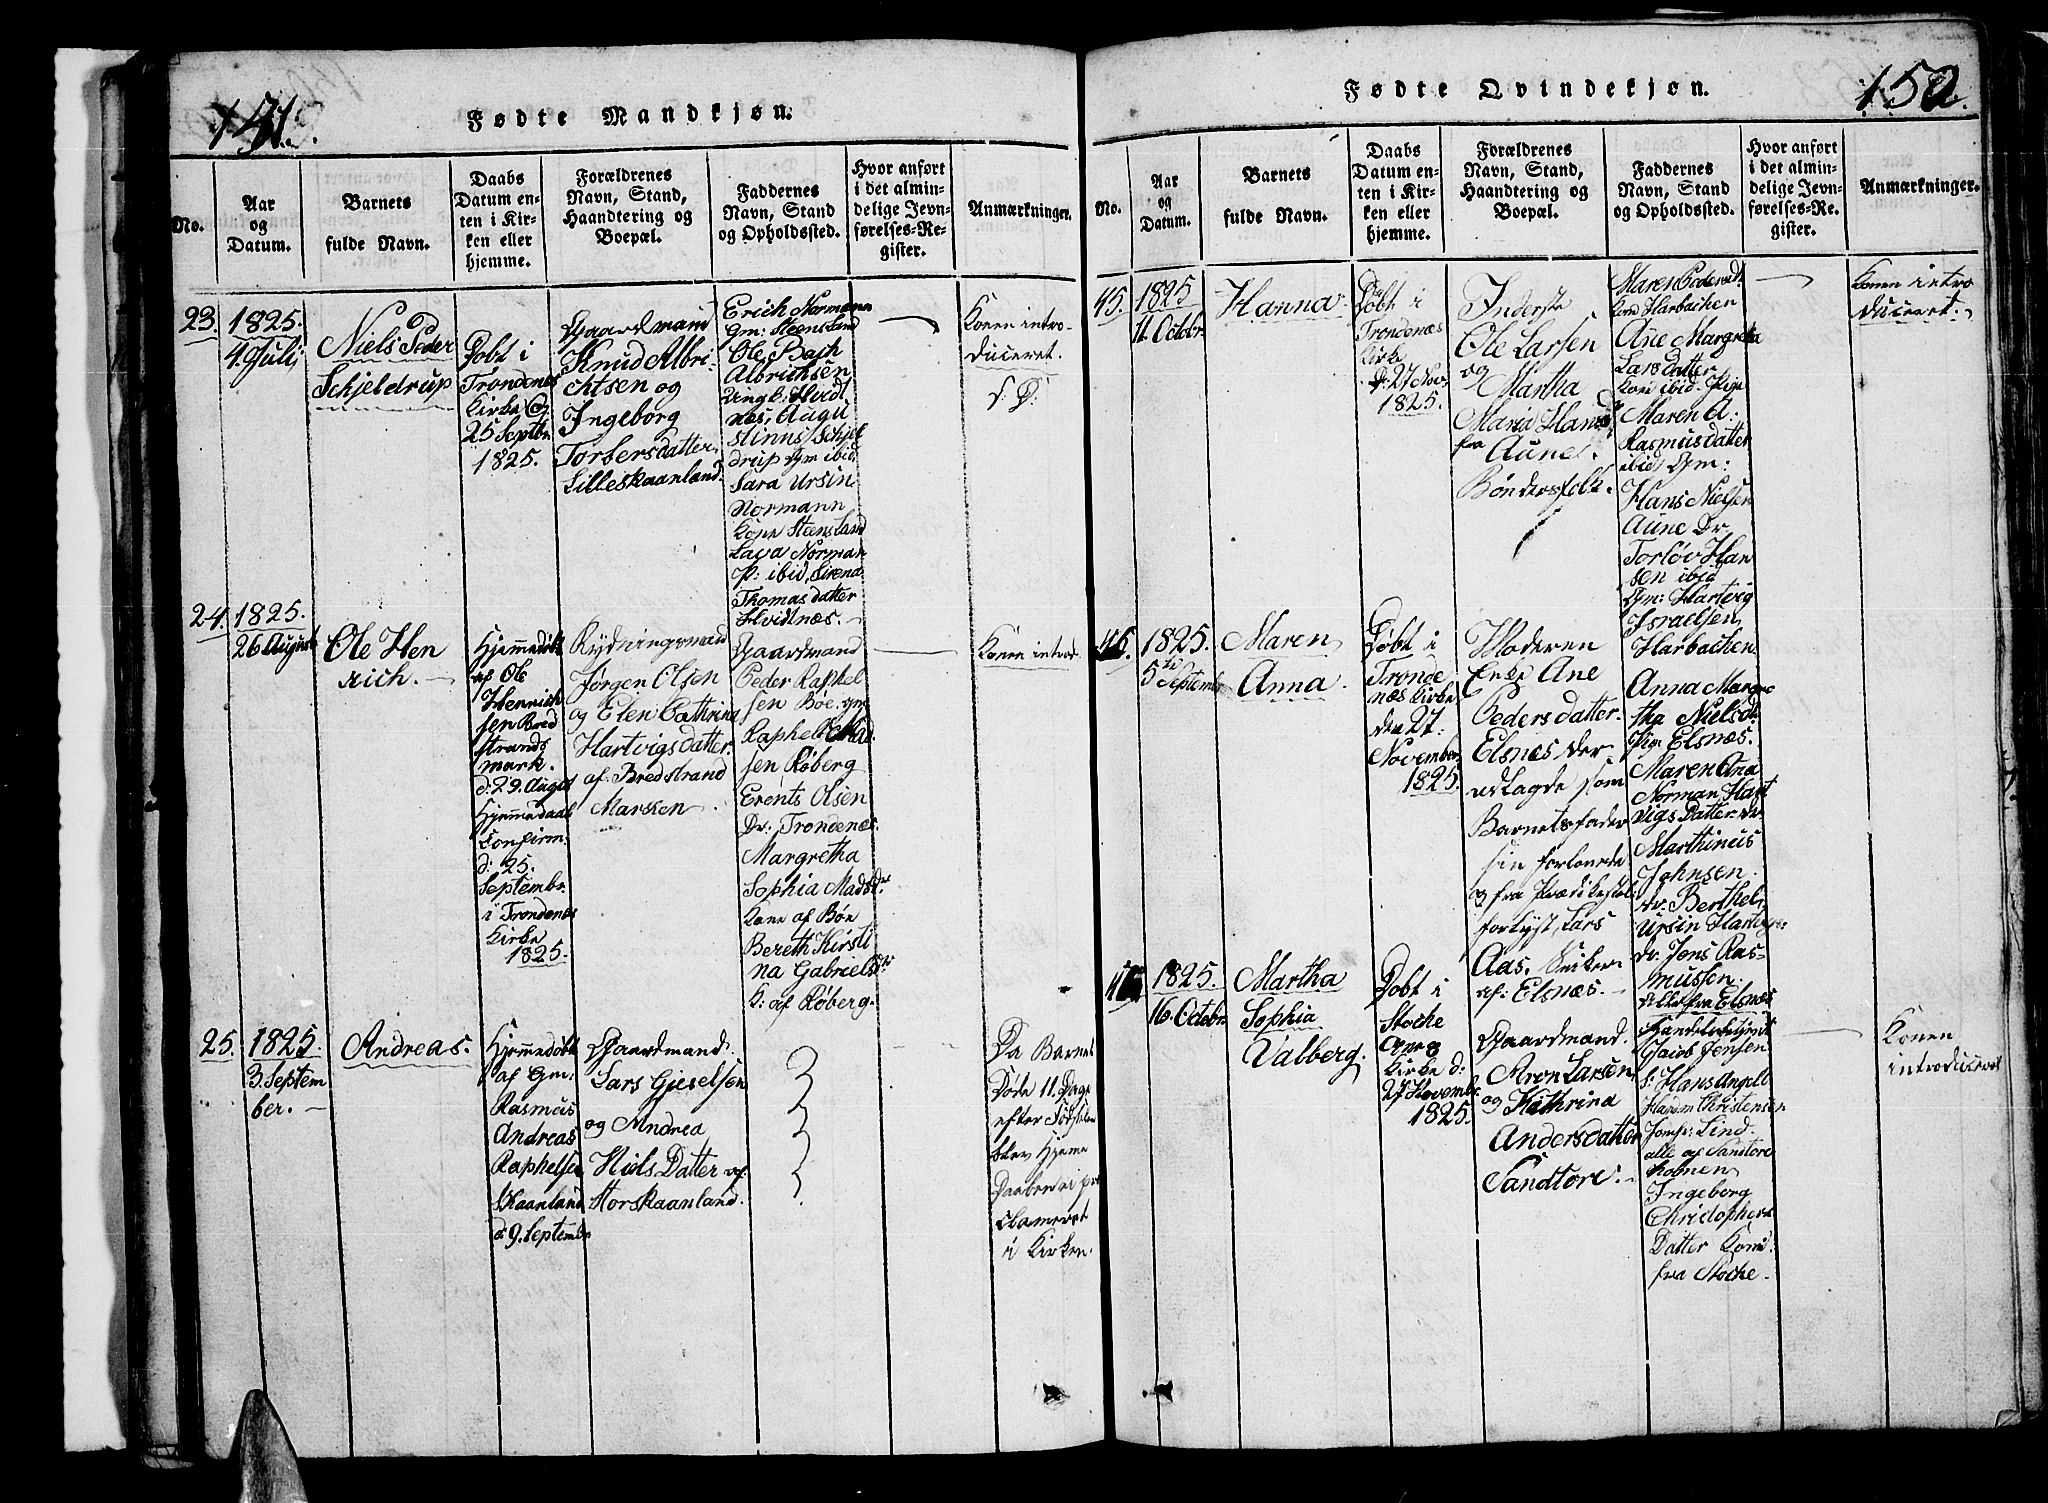 151.
Fødte Mandkjøn.
No.
Aar
og
Datum.
Barnets
fulde Navn.
Daabs
Datum en-
ten i Kir-
ken eller
hjemme.
Forældrenes
Navn, Stand,
Haandtering og
Boepæl.
Faddernes
Navn, Stand
og Opholdssted.
Hvor anført
i det almin-
delige Jevn-
førelses-Re-
gister.
Anmærkninger.
23.
1825.
4. Julj
Niels Peder
Schjeldrup
Døbt i
Trondenes
Kirke
25 Septbr
1825.
Gaardmand
Knud Albri-
chtsen og
Ingeborg
Torbersdatter
Lilleskaanland.
Erich Normann
Gm: Steensland
Ole Bach
Albrichsen
Ungk: Hvidt
næs, Augu
stinus Schjel
drup Gm ibid
Sara Ursin
Normann
Kone Steensland
Norman
P: ibid, Sirena
Thomasdatter
Hvidtnæs.
Konen intro-
duceret.
24.
1825.
26 August
Ole Hen
rich.
Hjemmedøbt
af Ole
Henrich
sen Bred
strands
mark.
d: 29. Augst
Hjemmedaab
Confirm.
d: 25.
Septembr.
i Trondenæs
Kirke
1825.
Rydningsmand
Jørgen Olsen
og Elen Cathrina
Hartvigsdatter.
af Bredstrand
Marken
Gaardmand
Peder Raphel
sen Bøe. gm
Raphel
sen Røberg
Erents Olsen
Dr: Trondenæs.
Margretha
Sophia Madsdr
Kone af Bøe
Bereth Kirsti
na Gabrielsdr
K: af Røberg.
Konen introd.
25.
1825.
3. Septem
ber.
Andreas.
Hjemmedøbt
af Gm:
Rasmus
Andreas
Raphelsen
Skaanland
d: 9. Septembr
Gaardmand
Lars Gieselsen
og Andrea
Niels Datter af:
Storskaanland.
Da Barnet
Døde 11. Dage
efter Fødselen
blev Hjeme
Daaben ei pro
clameret
i Kirken.
152.
Fødte Qvindekjøn.
No.
Aar
og
Datum.
Barnets
fulde Navn.
Daabs
Datum en-
ten i Kir-
ken eller
hjemme.
Forældrenes
Navn, Stand,
Haandtering og
Boepæl.
Faddernes
Navn, Stand
og Opholdssted.
Hvor anført
i det almin-
delige Jevn-
førelses-Re-
gister.
Anmærkninger.
45.
1825
11. Octobr.
Hanna
Døbt i
Trondenæs
Kirke
D: 27 Nov.
1825.
Inderste
Ole Larsen
og
Martha
Maria Hansd
fra
Aune.
Bøndersfolk.
Maren Pedersd:
Harbachen
Ane Margreta
Larsdatter
Kone ibid: Pige
Maren A:
Rasmusdatter
ibid, Gm:
Hans Nielsen
Aune Dr
Torløv Han
sen ibid
Gm: Hartvig
Israelsen
Harbachen
Konen intro
duceret.
46.
1825.
5te Septembr
Maren
Anna
Døbt i
Tronde
næs Kirke
den 27:
November
1825.
Moderen
Enke Ane
Pedersdatter.
Elsnæs der
udlagde som
Barnetsfader
sin forlovede
og fra Prædikestol
forlyst, Lars
Aas. Enker
af: Elsnæs.
Anna Margre
tha Nielsd:
Pige Elsnæs.
Maren Ana
Norman Hart
vigs Datter Dr
Marthinus
Johnsen
Dr. Berthel
Ursin Hartvigs:
Dr. Jens Ras-
mussen
alle fra Elsnæs
1825.
16. Octobr
Martha
Sophia
Valberg.
Døbt i
Stocke
Kirke d:
27 Novembr
1825.
Gaardmand.
Aron Larsen
og Kathrina
Andersdatter
Sandtorv.
Jacob Jensen
S: Hans Angell
Christensen
Jomf: Lind
alle af Sandtorv
kobnen
Ingeborg
Christophers
Datter Kone
fra Stocke.
Konen
introduceret